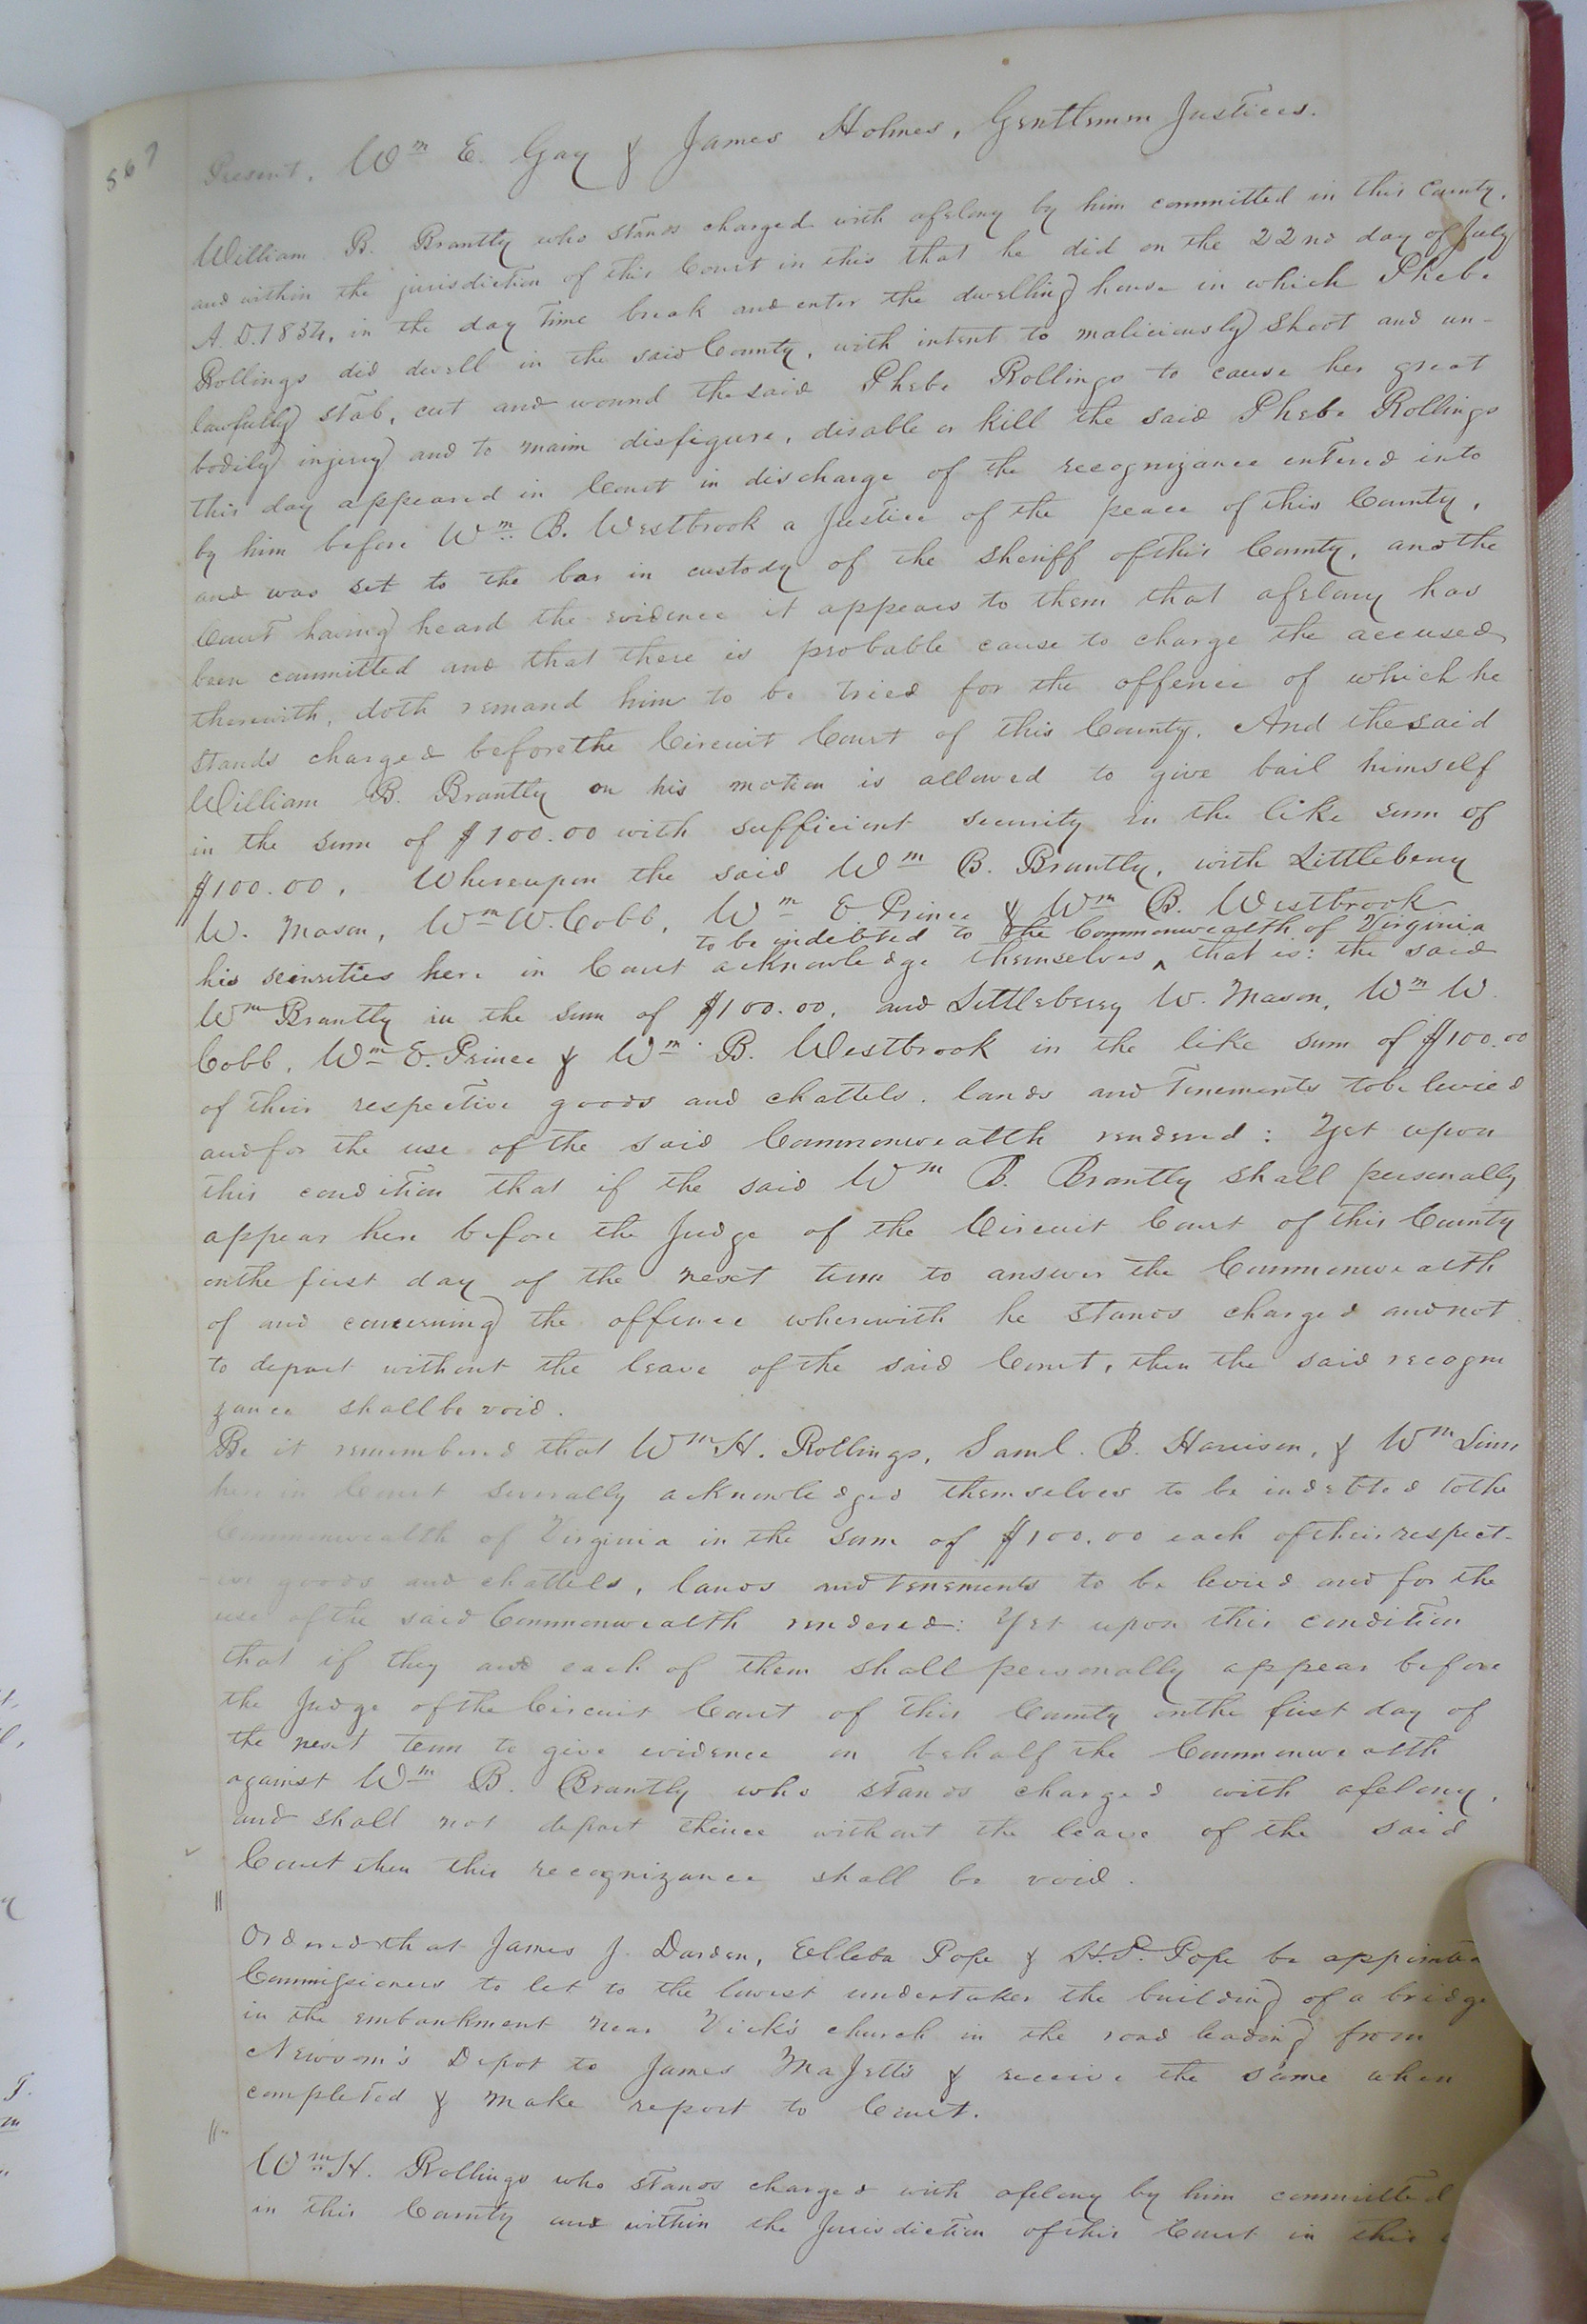 567
Present, Wm E. Gay & James Holmes, Gentlemen Justices.
William B. Brantly who stands charged with a felony by him committed in this County,
and within the jurisdiction of this Court in this that he did on the 22nd day of July
A.D. 1854, in the day time break and enter the dwelling house in which Phebe
Rollings did dwell in the said County, with intent to maliciously shoot and un-
lawfully stab, cut and wound the said Phebe Rollings to cause her great
bodily injury and to maim disfigure, disable or kill the said Phebe Rollings
this day appeared in Court in discharge of the recognizance entered into
by him before Wm B. Westbrook a Justice of the peace of this County,
and was set to the bar in custody of the sheriff of this County, and the
Court having heard the evidence it appears to them that a felony has
been committed and that there is probable cause to charge the accused
therewith, doth remand him to be tried for the offence of which he
stands charged before the Circuit Court of this County. And the said
William B. Brantly on his motion is allowed to give bail himself
in the sum of $100.00 with sufficient security in the like sum of
$100.00. Whereupon the said Wm B. Brantly, with Littleberry
W. Mason, Wm W. Cobb, Wm E Prince & Wm B. Westbrook
to be indebted to the Commonwealth of Virginia
his securities here in Court acknowledge themselves ‸ that is: the said
Wm Brantly in the sum of $100.00, and Littleberry W. Mason, Wm W.
Cobb, Wm E. Prince & Wm B. Westbrook in the like sum of $100.00
of their respective goods and chattels, lands and Tenements to be levied
and for the use of the said Commonwealth rendered: Yet upon
this condition that if the said Wm B. Brantly shall personally
appear here before the Judge of the Circuit Court of this County
on the first day of the next term to answer the Commonwealth
of and concerning the offence wherewith he stands charged and not
to depart without the leave of the said Court, then the said recogni
zance shall be void.
Be it remembered that Wm H. Rollings, Saml. B. Harrison, & Wm
here in Court severally acknowledged themselves to be indebted to the
Commonwealth of Virginia in the sum of $100.00 each of their respect-
-ive goods and chattels, lands and Tenements to be levied and for the
use of the said Commonwealth rendered: Yet upon this condition
that if they and each of them shall personally appear before
the Judge of the Circuit Court of this County on the first day of
the next term to give evidence on behalf the Commonwealth
against Wm B. Brantly who stands charged with a felony,
and shall not depart thence without the leave of the said
Court then this recognizance shall be void.
Ordered that James J. Darden, Elleba Pope & H.P. Pope be appointed
Commissioners to let to the lowest undertaker the building of a bridge
in the embankment near Vick's church in the road leading from
Newsom's Depot to James MaJetts & receive the same when
completed & make report to Court.
Wm H. Rollings who stands charged with a felony by him committed
in this County and within the Jurisdiction of this Court in this